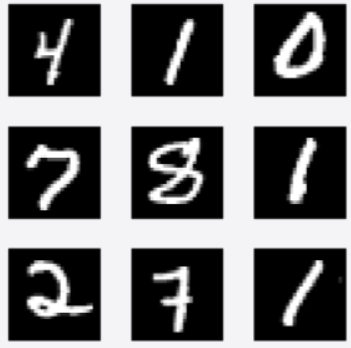 4 1 0
7 8 1
2 7 1